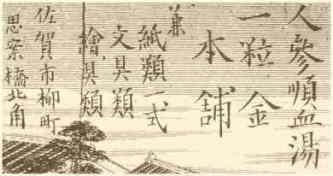 人參順血湯
一粒金
本舗
兼
紙類一式
文具類
繪具類
佐賀市柳町
思案橋北角